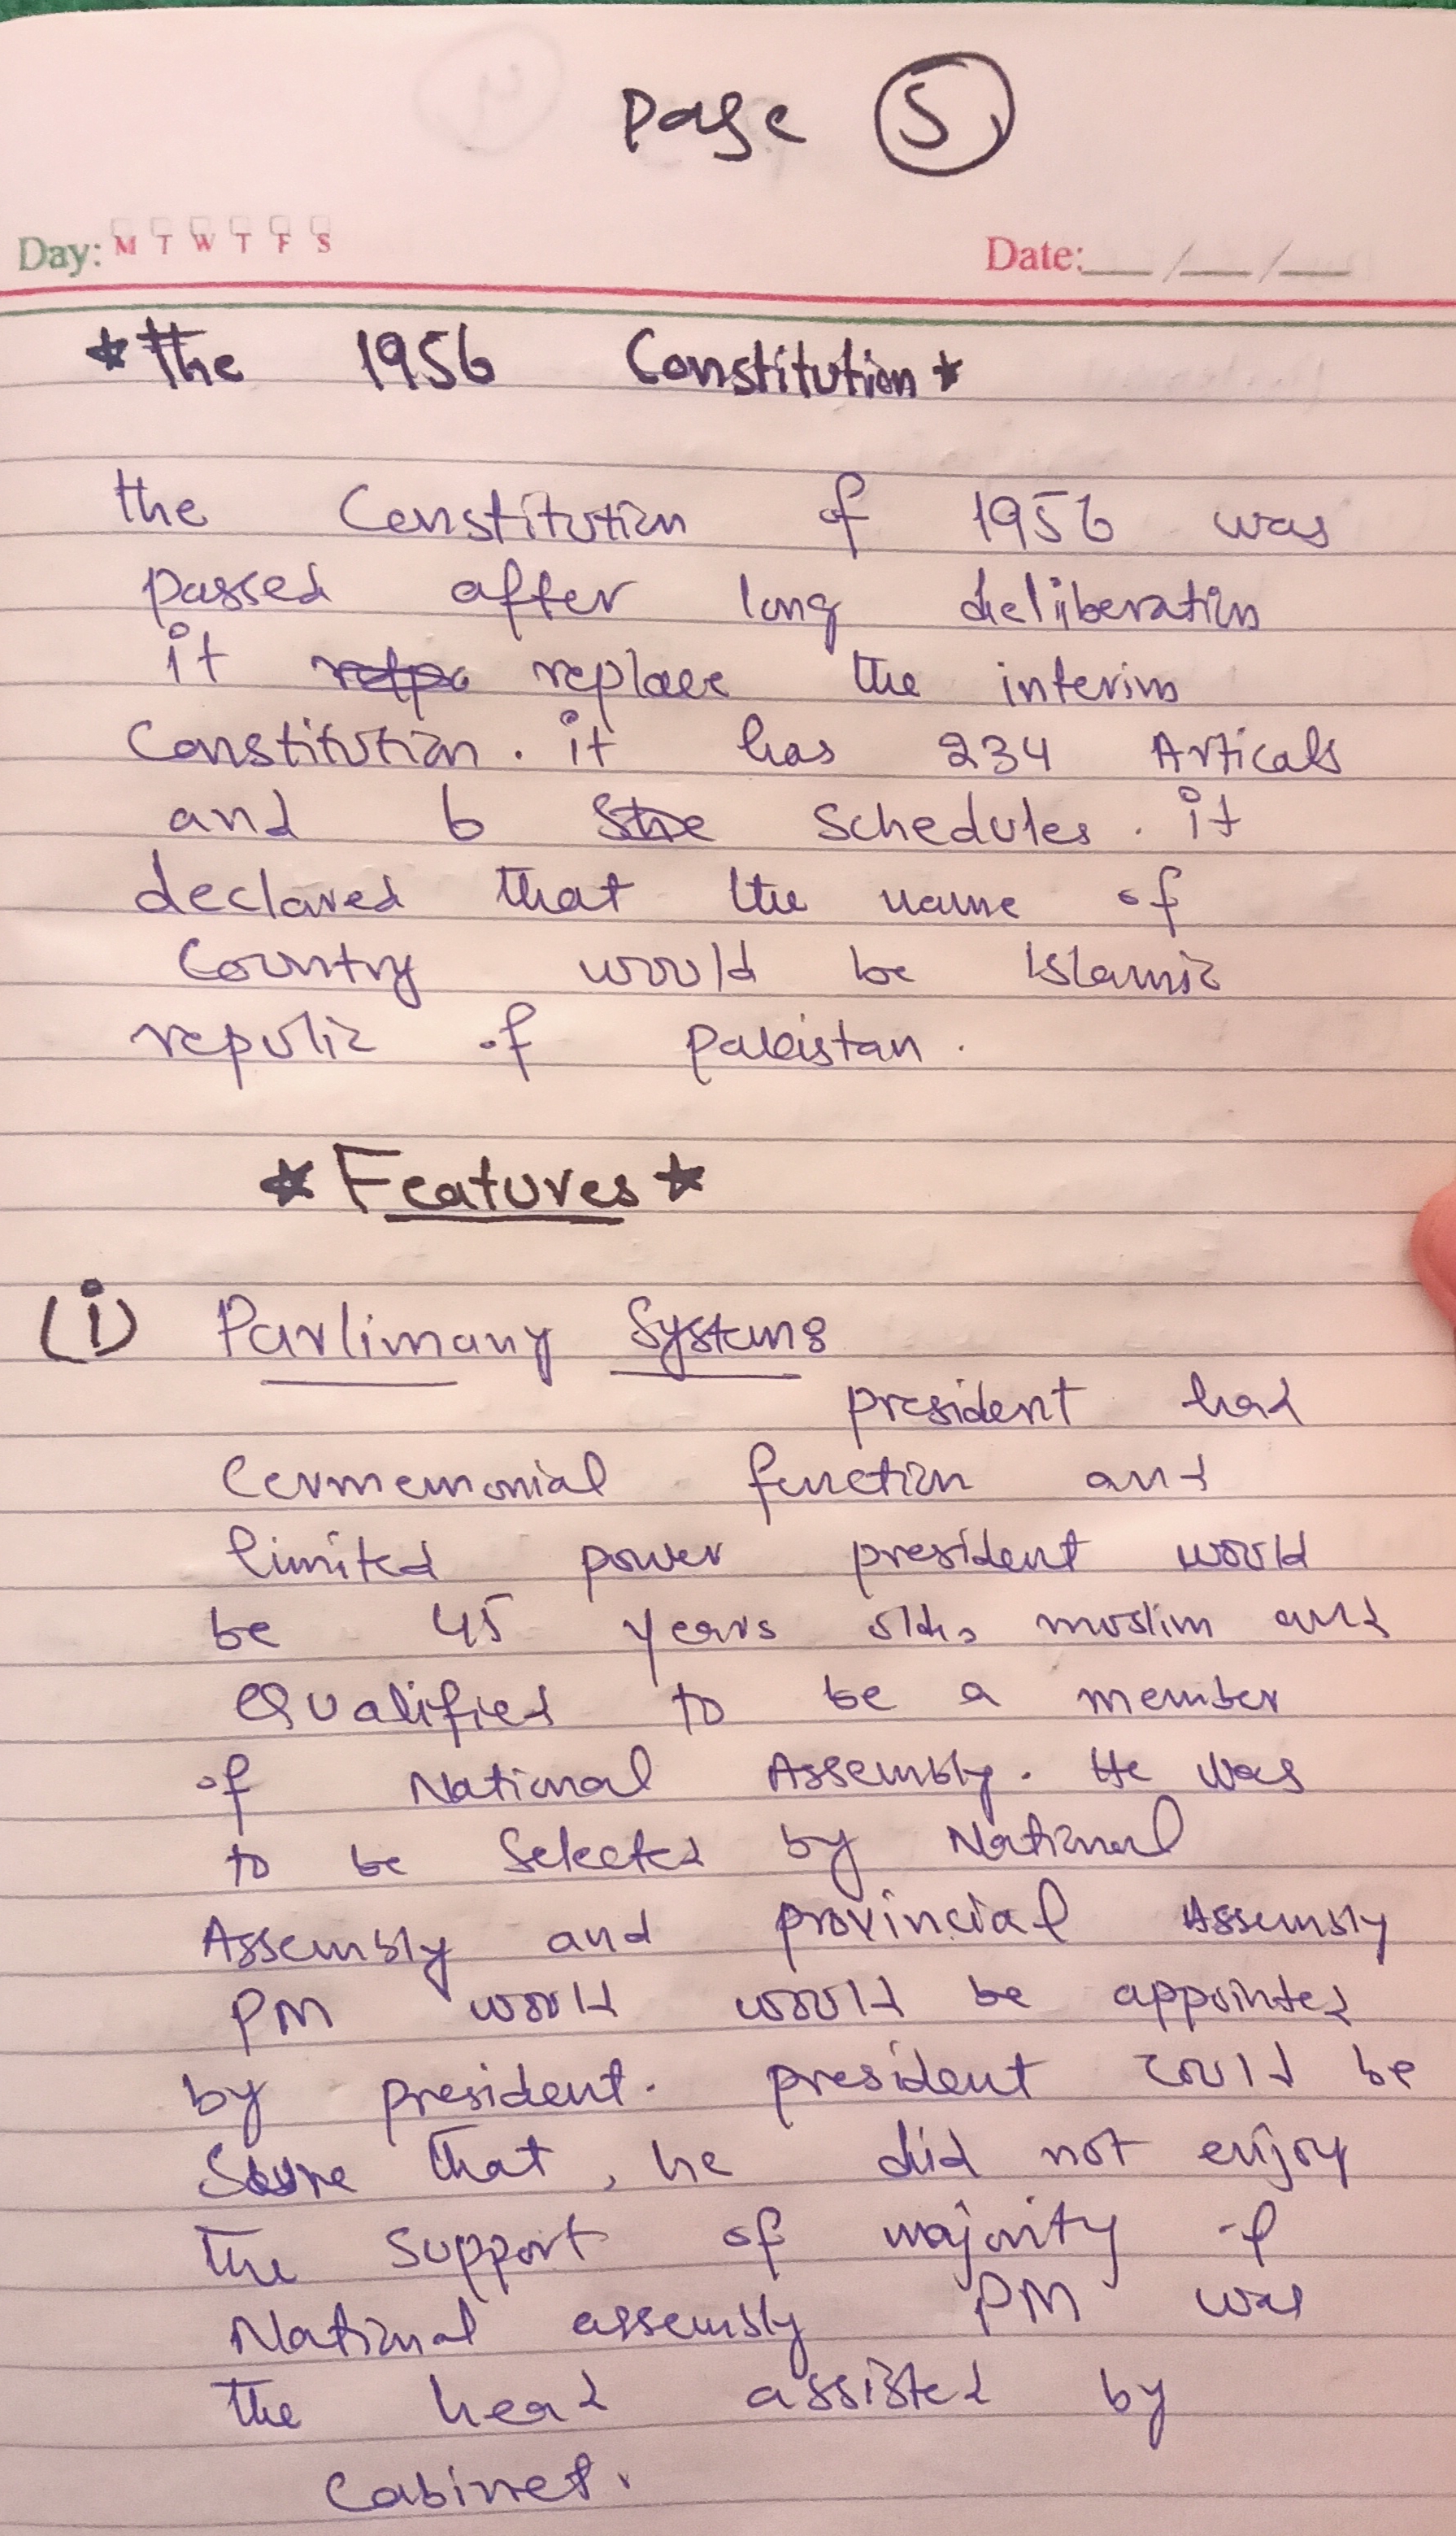 Page 5
Day: M T W T F S Date: __/__/__
*The 1956 Constitution*
the Constitution of 1956 was
passed after long deliberation
it replace the interim
Constitution. it has 234 Articals
and 6 Schedules. it
declared that the name of
Country would be Islamic
repulic of pakistan.
*Features*
(i) Parlimany Systems
president had
Cermemonial function and
limited power president would
be 45 years old, muslim and
Qualified to be a member
of National Assembly. He was
to be Selected by National
Assembly and provincial Assembly
PM would would be appointed
by president. president could be
Sure that, he did not enjoy
the support of majority of
National assembly PM was
the head assisted by
Cabinet.